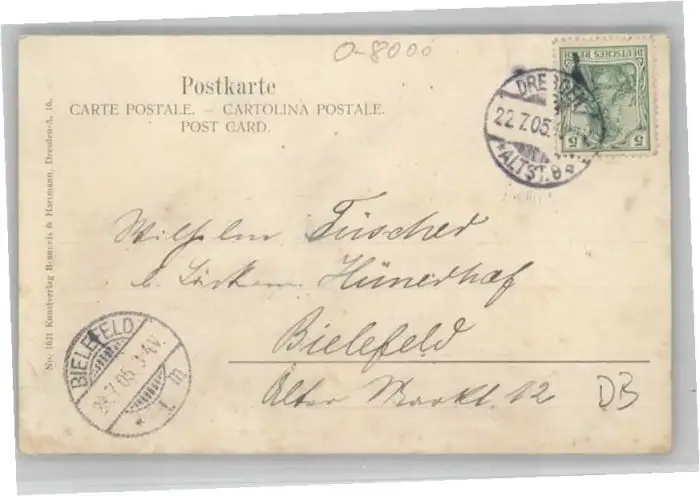 0-8000
Postkarte
CARTE POSTALE. — CARTOLINA POSTALE.
POST CARD.
DEUTSCHES REICH
5 5
DRESDEN
22.7.05.
*ALTST. 9 a
Wilhelm Füscher
b. Hünerhof
Bielefeld
Alter Markt. 12
DB
BIELEFELD
23.7.05. 3-4V.
* 1 m
No. 1621 Kunstverlag & Hartmann, Dresden-A. 16.